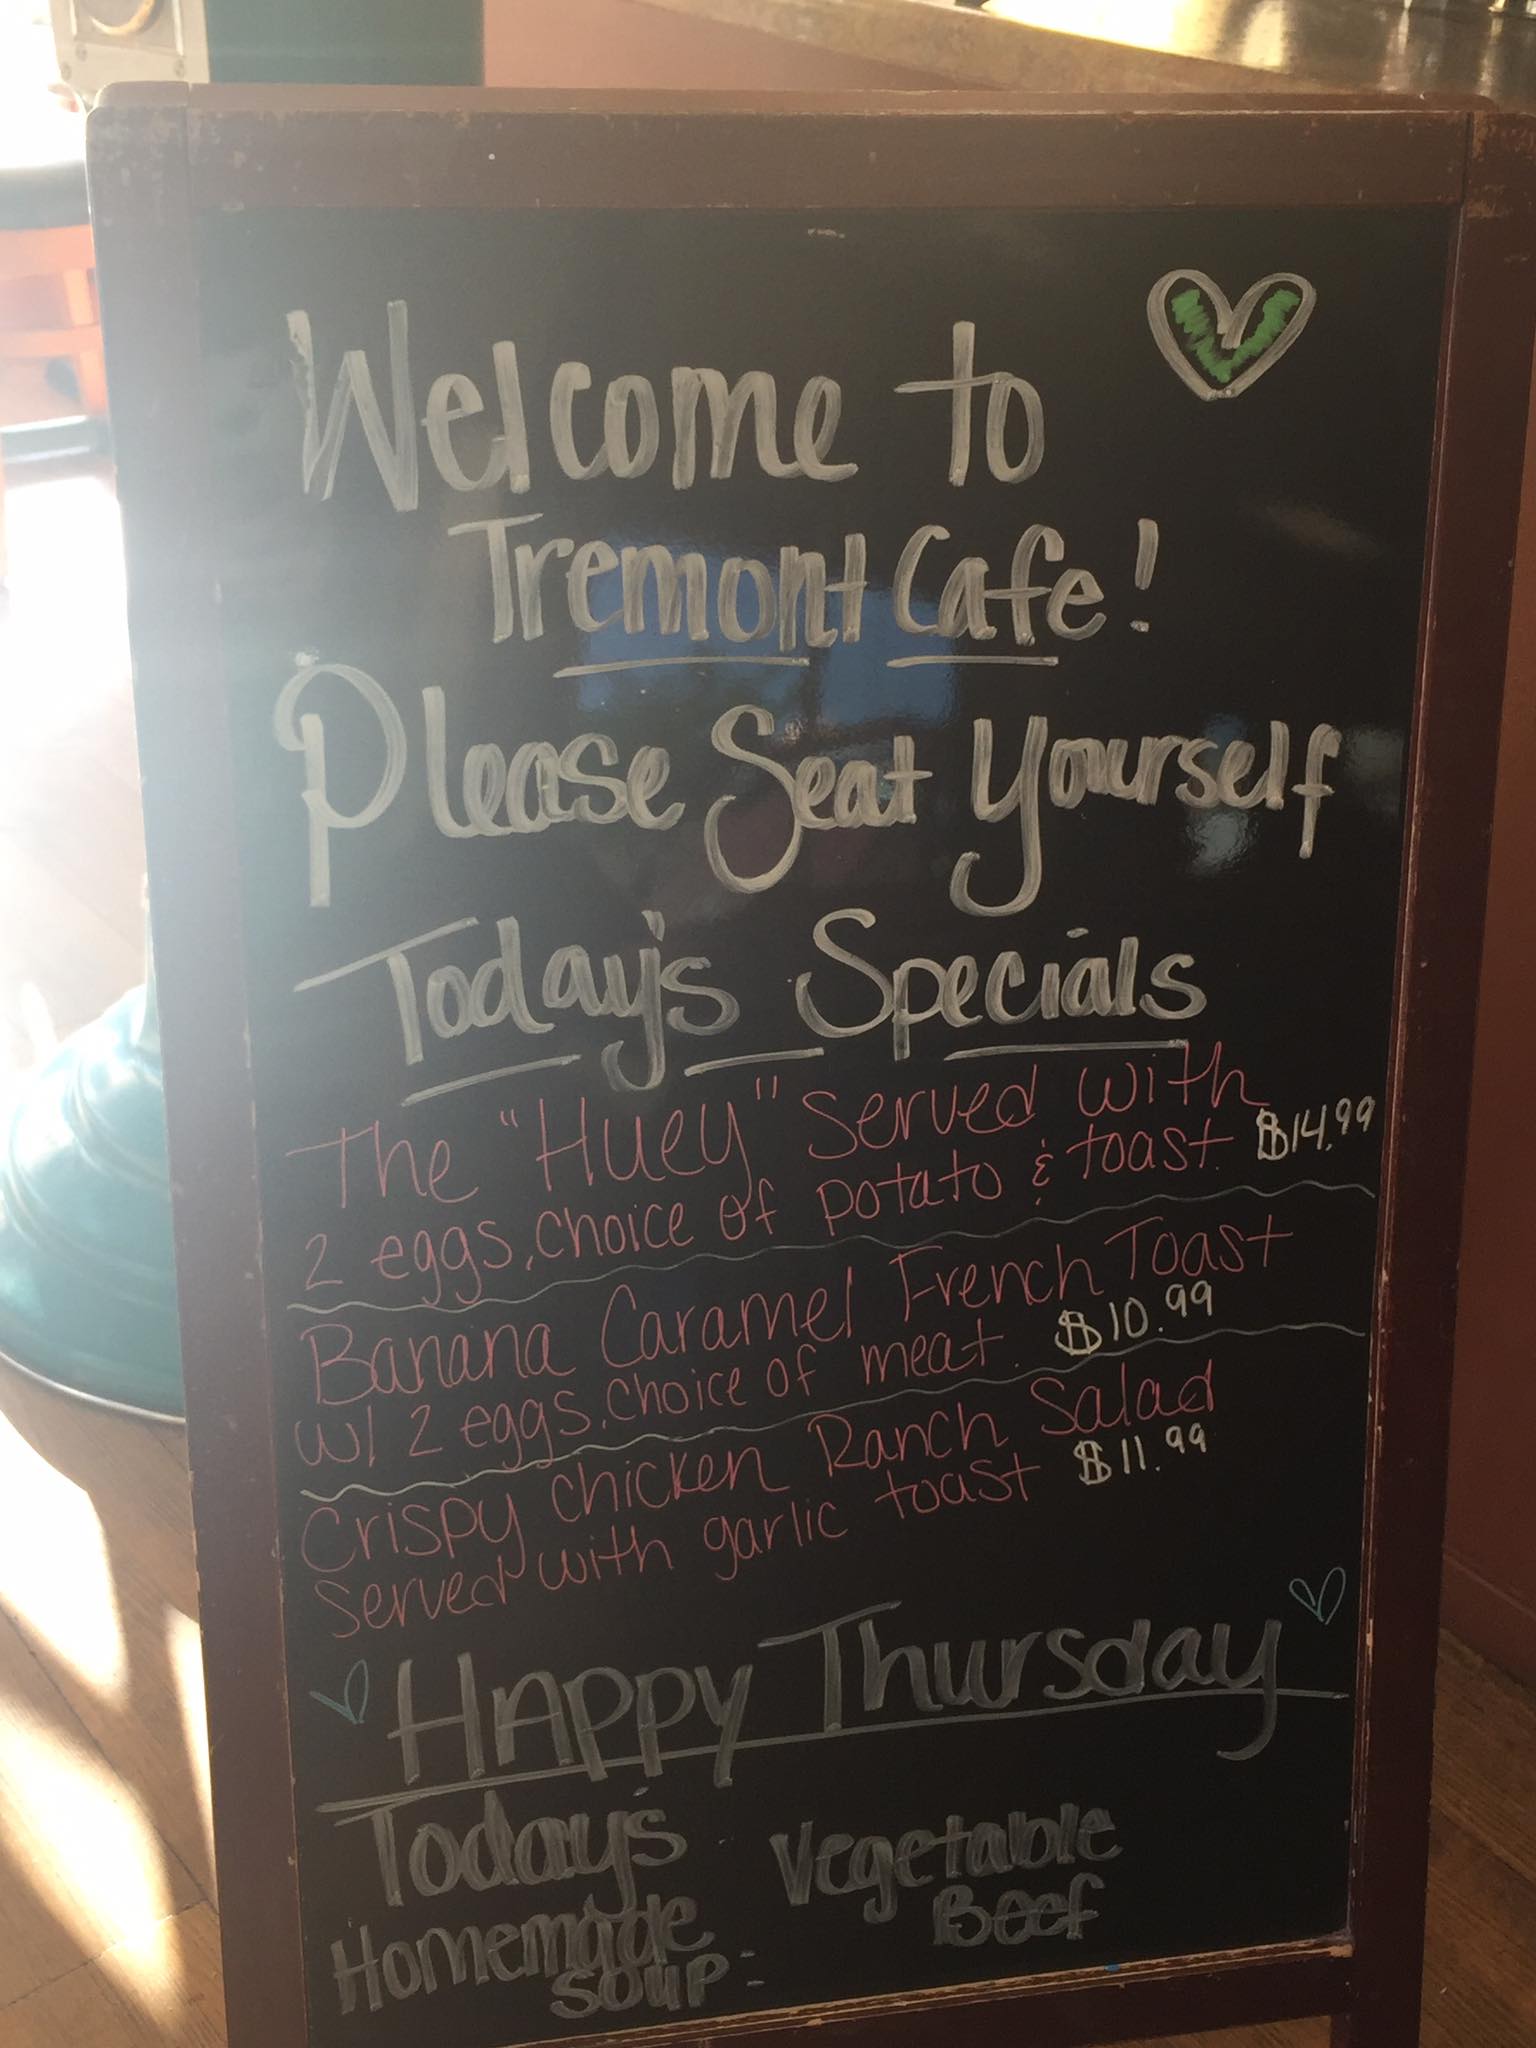 Welcome to
Tremont Cafe!
Please Seat Yourself
Today's Specials
The "Huey" served with
2 eggs, choice of potato & toast $14.99
Banana Caramel French Toast
w/ 2 eggs, choice of meat. $10.99
Crispy chicken Ranch Salad
served with garlic toast $11.99
Happy Thursday
Today's Vegetable
Homemade Beef
soup -